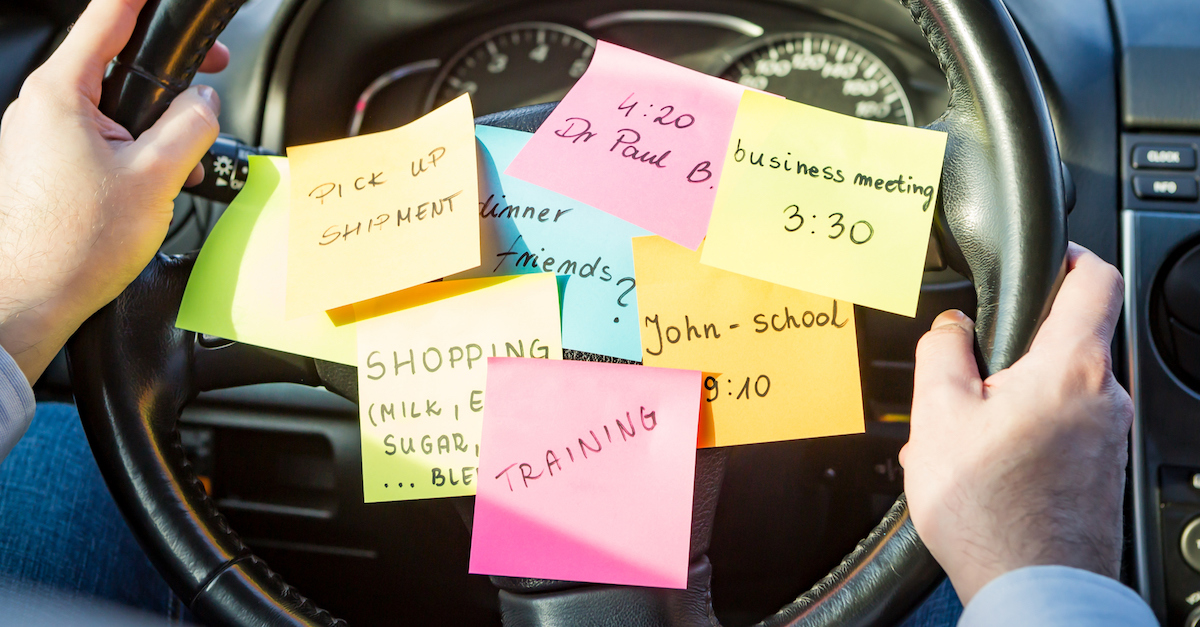 4:20
Dr Paul B.
business meeting
3:30
PICK UP
SHIPMENT
dinner
friends?
John - school
9:10
SHOPPING
(MILK,
SUGAR,
...
TRAINING
CLOCK
INFO